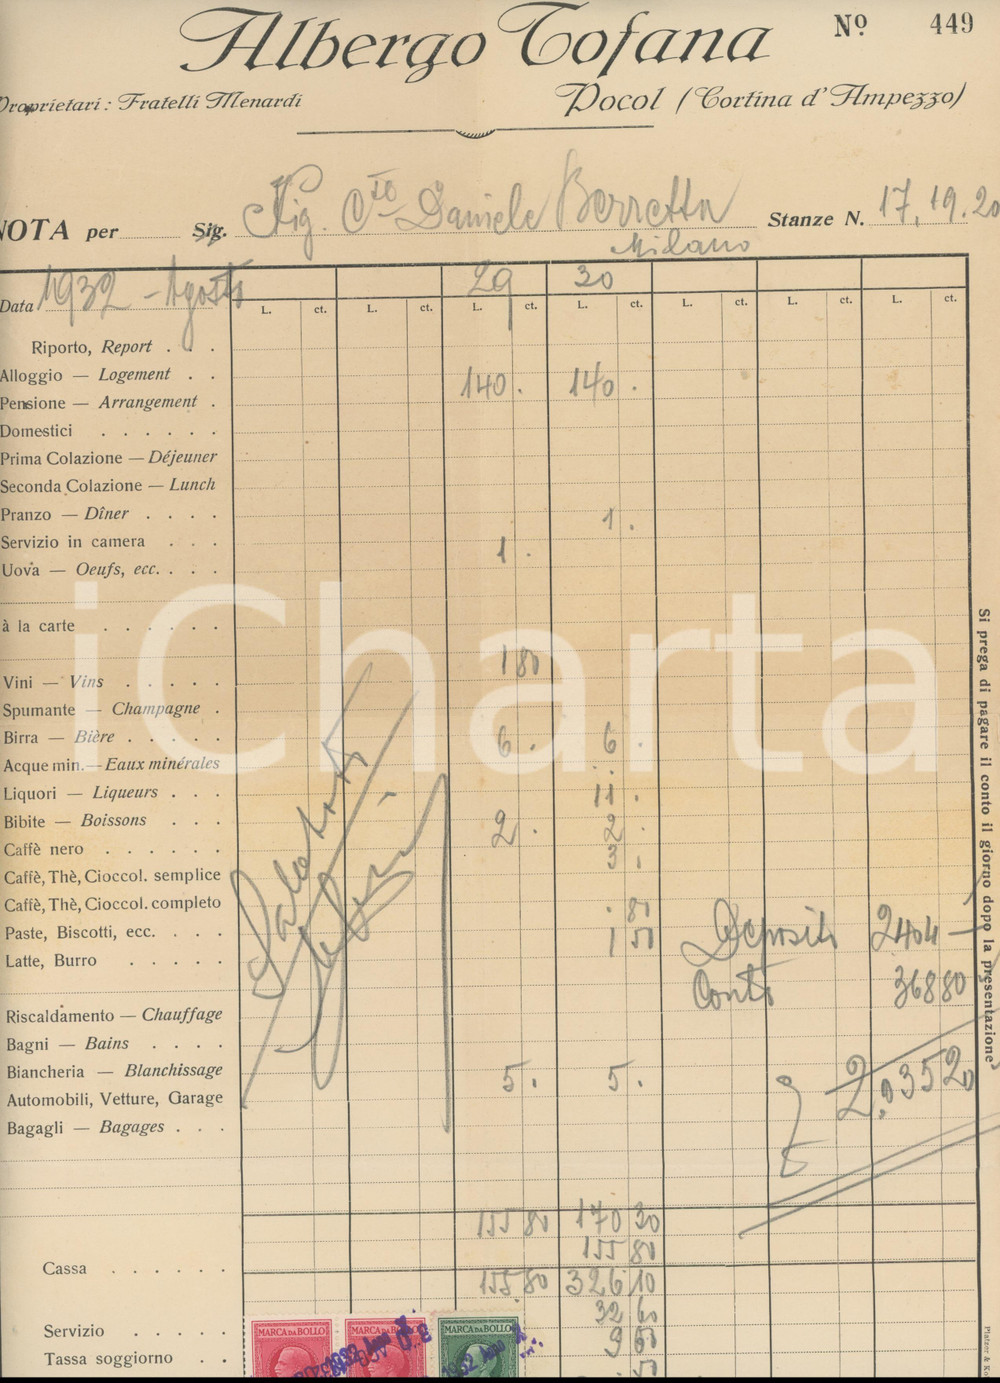 Albergo Tofana
Nº 449
Proprietari: Fratelli Menardi
Pocol (Cortina d'Ampezzo)
NOTA per Sig. Sig. Cte Daniele Berretta Stanze N. 17, 19. 20
Milano
Data 1932 - Agosto 29 30
L. ct. L. ct. L. ct. L. ct. L. ct. L. ct. L. ct.
Riporto, Report . . .
Alloggio — Logement . . 140 . 140 .
Pensione — Arrangement .
Domestici . . . . . .
Prima Colazione — Déjeuner
Seconda Colazione — Lunch
Pranzo — Dîner . . . . 1 .
Servizio in camera . . . 1 .
Uova — Oeufs, ecc. . . .
à la carte . . . . . .
Vini — Vins . . . . . 1 80
Spumante — Champagne .
Birra — Bière . . . . . 6 . 6 .
Acque min. — Eaux minérales
Liquori — Liqueurs . . . 11 .
Bibite — Boissons . . . 2 . 2 .
Caffè nero . . . . . . 3 .
Caffè, Thè, Cioccol. semplice
Caffè, Thè, Cioccol. completo . 80
Paste, Biscotti, ecc. . . . 1 50 Depositi 2404 —
Latte, Burro . . . . . Conto 368 80
Riscaldamento — Chauffage
Bagni — Bains . . . .
Biancheria — Blanchissage 5 . 5 . 2.035 20
Automobili, Vetture, Garage
Bagagli — Bagages . . .
155 80 170 30
155 80
Cassa . . . . . . 155 80 326 10
32 60
Servizio . . . . . 9 60
Tassa soggiorno . . 50
MARCA DA BOLLO MARCA DA BOLLO MARCA DA BOLLO
1932 Anno X
Si prega di pagare il conto il giorno dopo la presentazione
iCharta